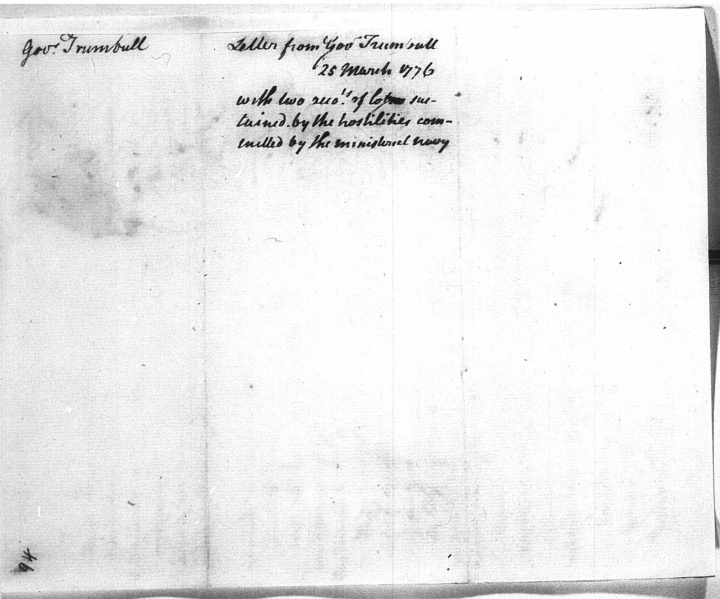 Govr. Trumbull
Letter from Gov Trumbull
25 March 1776
with two acots. of losses sus-
tained by the hostilities com-
mitted by the ministerial navy
94